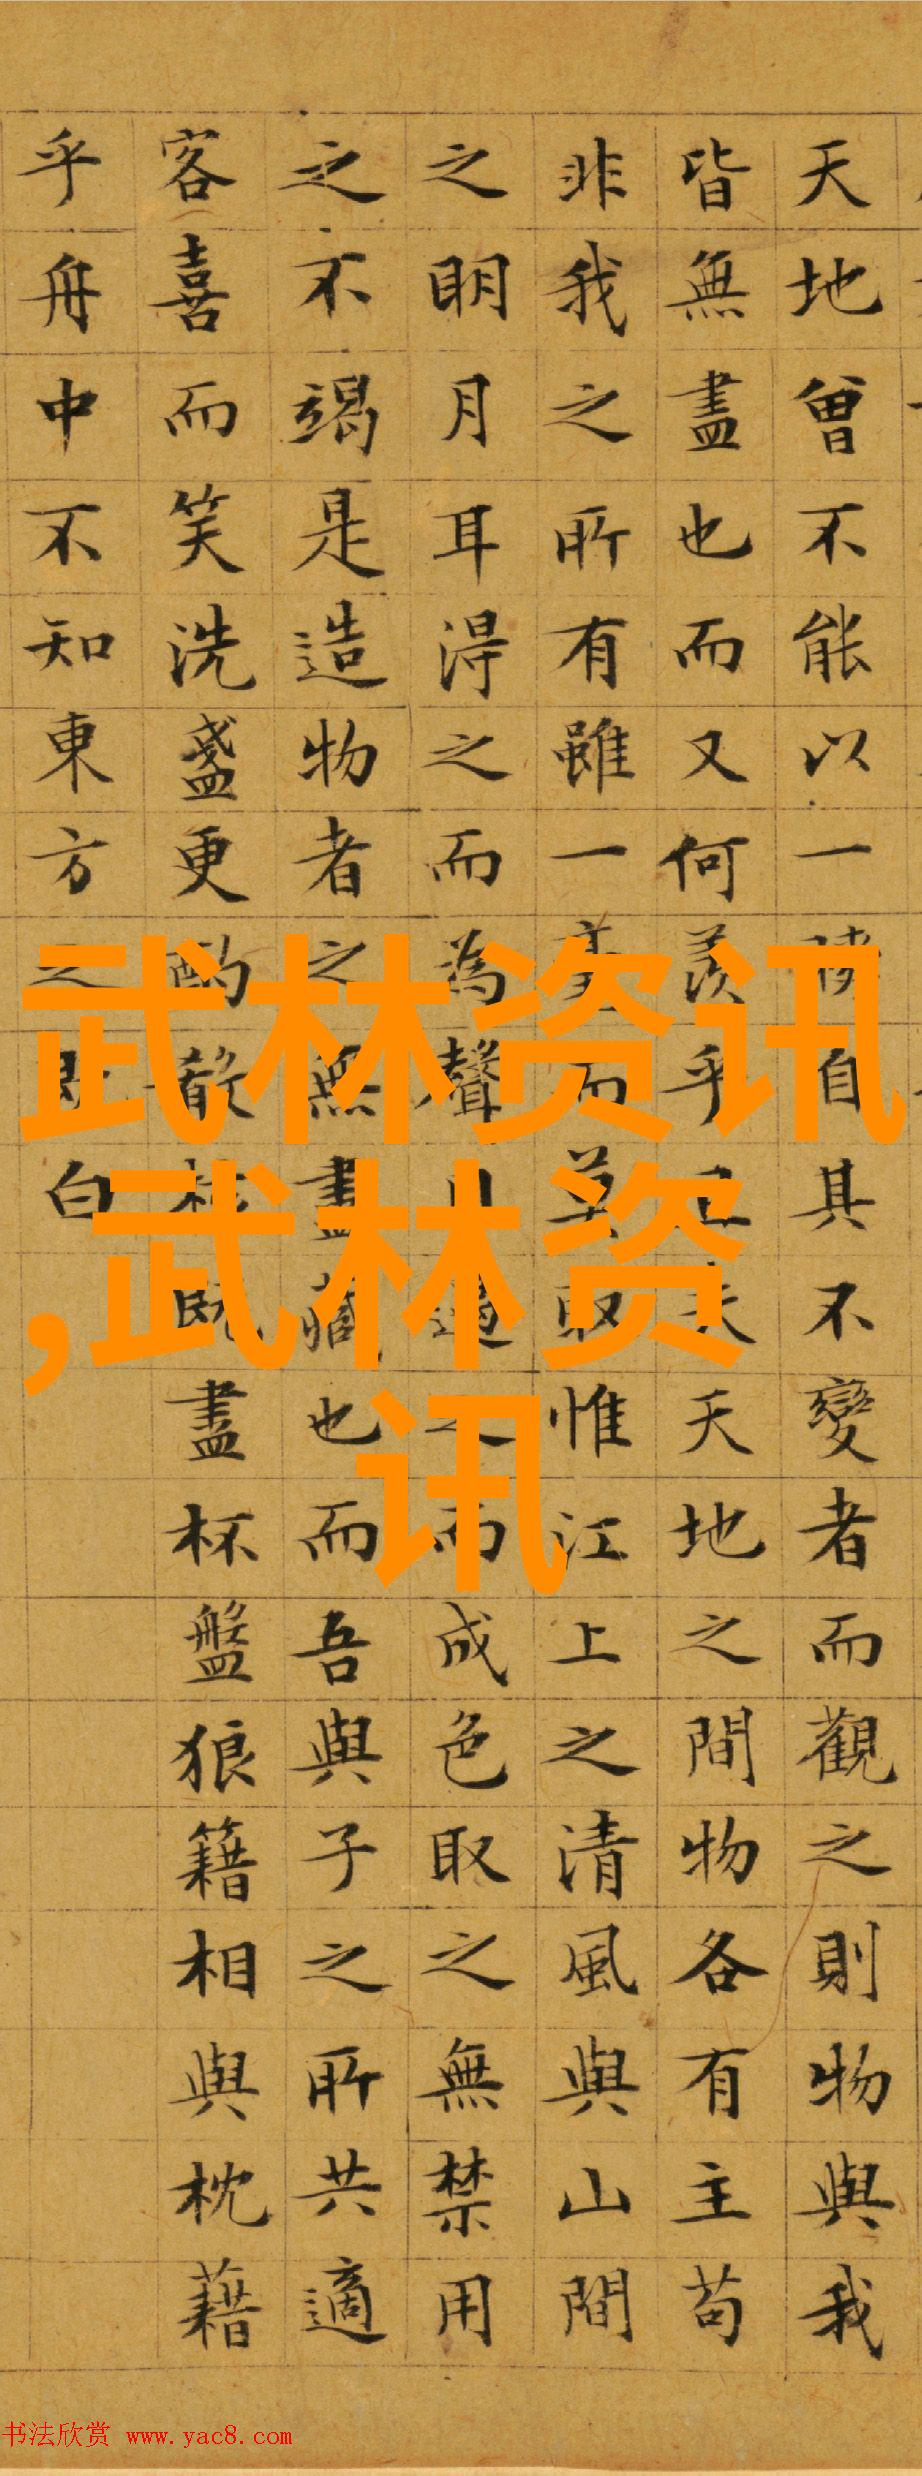 天地曾不能以一瞬自其不變者而觀之則物與我
皆無盡也而又何羨乎且夫天地之間物各有主苟
非我之所有雖一毫而莫取惟江上之清風與山間
之明月耳得之而為聲目遇之而成色取之無禁用
之不竭是造物者之無盡藏也而吾與子之所共適
客喜而笑洗盞更酌殽核既盡杯盤狼籍相與枕藉
乎舟中不知東方之既白
武林资讯
,武林资
讯
书法欣赏 www.yac8.com